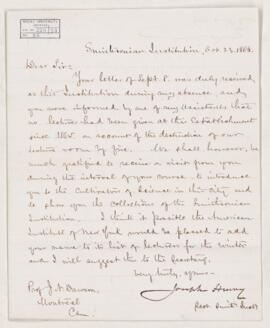 Smithsonian Institution, Oct. 23, 1868.
Dear Sir:
Your letter of Sept. 8. was duly received
at this Institution during my absence, and
you were informed by one of my assistants that
no lectures had been given at this Establishment
since 1865. on account of the destruction of our
lecture room by fire. We shall however, be
much gratified to receive a visit from you
during the interval of your course, to introduce
you to the Cultivators of science in this city and
to show you the Collections of the Smithsonian
Institution. I think it possible the American
Institute of New York would be pleased to add
your name to its list of lecturers for the winter
and I will suggest this to the Secretary.
Very truly yours
Joseph Henry
Prof J. W. Dawson,
Montreal